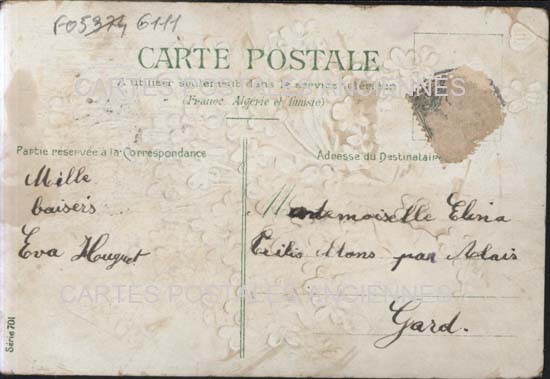 F05374 6111
CARTE POSTALE
A utiliser seulement dans le service intérieur
(France, Algérie et Tunisie)
Partie réservée à la Correspondance
Adresse du Destinataire
Mille
baisers
Eva Huguet
Mademoiselle Elina
Mons par Alais
Gard.
Série 701
CARTES POSTALES ANCIENNES
CARTES POSTALES ANCIENNES